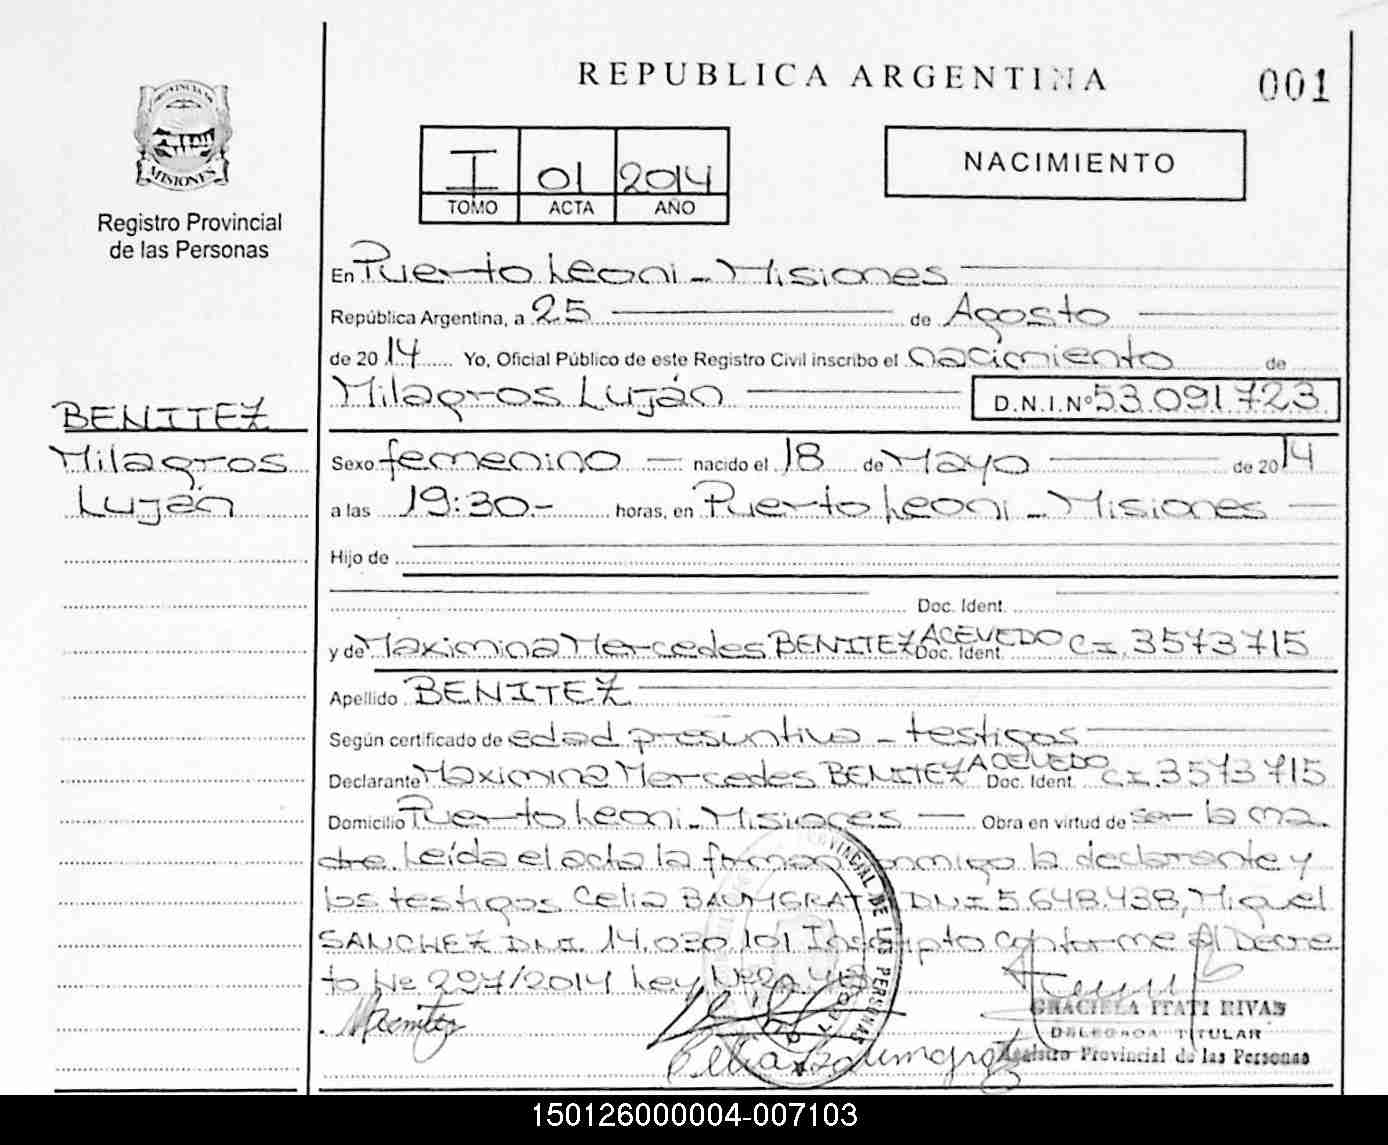 REPUBLICA ARGENTINA
001
PROVINCIA DE
MISIONES
Registro Provincial
de las Personas
I 01 2014
TOMO ACTA AÑO
NACIMIENTO
En Puerto Leoni - Misiones
República Argentina, a 25 de Agosto
de 2014 Yo, Oficial Público de este Registro Civil inscribo el nacimiento de
Milagros Luján D.N.I.Nº 53.091.723
BENITEZ
Milagros
Luján
Sexo femenino nacido el 18 de Mayo de 2014
a las 19:30.- horas, en Puerto Leoni - Misiones
Hijo de
Doc. Ident.
y de Maximina Mercedes BENITEZ ACEVEDO Doc. Ident. C.I. 3573715
Apellido BENITEZ
Según certificado de edad presuntiva - testigos
Declarante Maximina Mercedes BENITEZ ACEVEDO Doc. Ident. C.I. 3573715
Domicilio Puerto Leoni - Misiones Obra en virtud de ser la ma-
dre. Leída el acta la firman conmigo la declarante y
los testigos Celia DNI 5.648.438, Miguel
SANCHEZ DNI. 14.030.101 Inscripto conforme al Decre
to Nº 297/2014 Ley Nº
MBenitez
GRACIELA ITATI RIVAS
DELEGADA TITULAR
Registro Provincial de las Personas
PROVINCIAL DE LAS PERSONAS
150126000004-007103